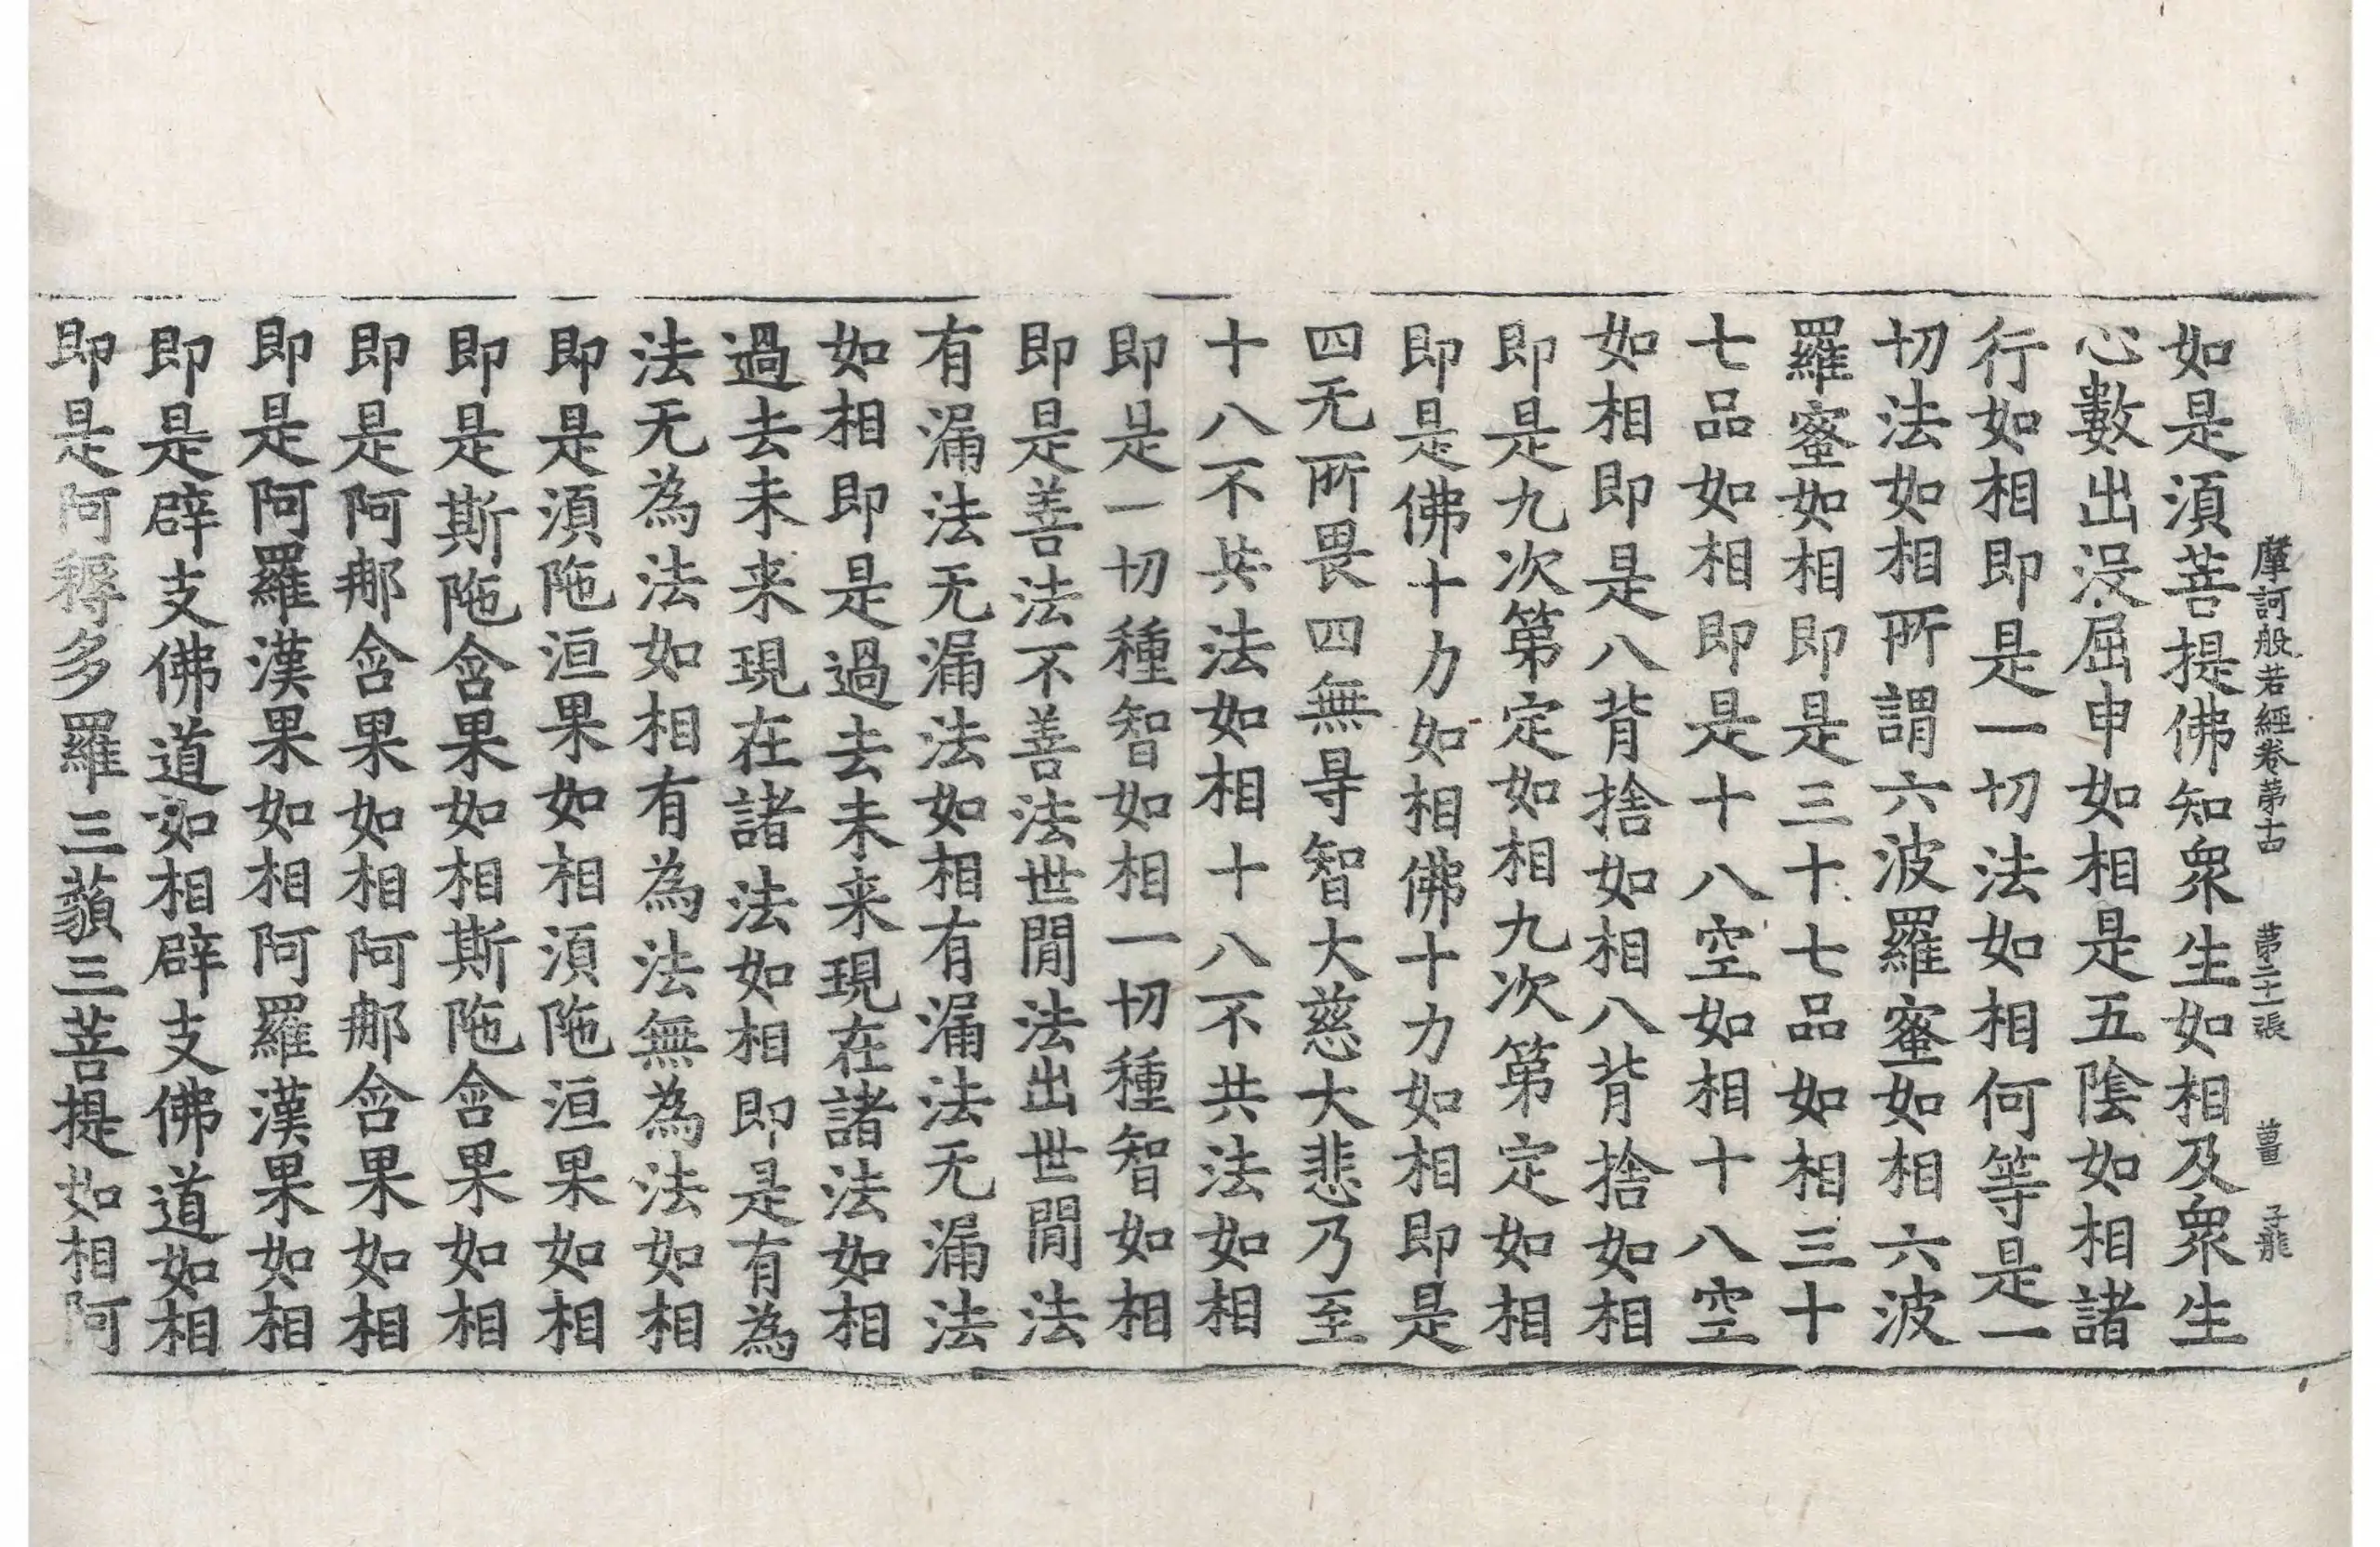 摩訶般若經卷第古 第二十一張 薑 子龍
如是湏菩提佛知衆生如相及衆生
心數出没屈申如相是五陰如相諸
行如相即是一切法如相何等是一
切法如相所謂六波羅蜜如相六波
羅蜜如相即是三十七品如相三十
七品如相即是十八空如相十八空
如相即是八背捨如相八背捨如相
即是九次第定如相九次第定如相
即是佛十力如相佛十力如相即是
四无所畏四無㝵智大慈大悲乃至
十八不共法如相十八不共法如相
即是一切種智如相一切種智如相
即是善法不善法世閒法出世閒法
有漏法无漏法如相有漏法无漏法
如相即是過去未来現在諸法如相
過去未来現在諸法如相即是有為
法无為法如相有為法無為法如相
即是湏陁洹果如相湏陁洹果如相
即是斯陁含果如相斯陁含果如相
即是阿那含果如相阿那含果如相
即是阿羅漢果如相阿羅漢果如相
即是辟支佛道如相辟支佛道如相
即是阿耨多羅三藐三菩提如相阿